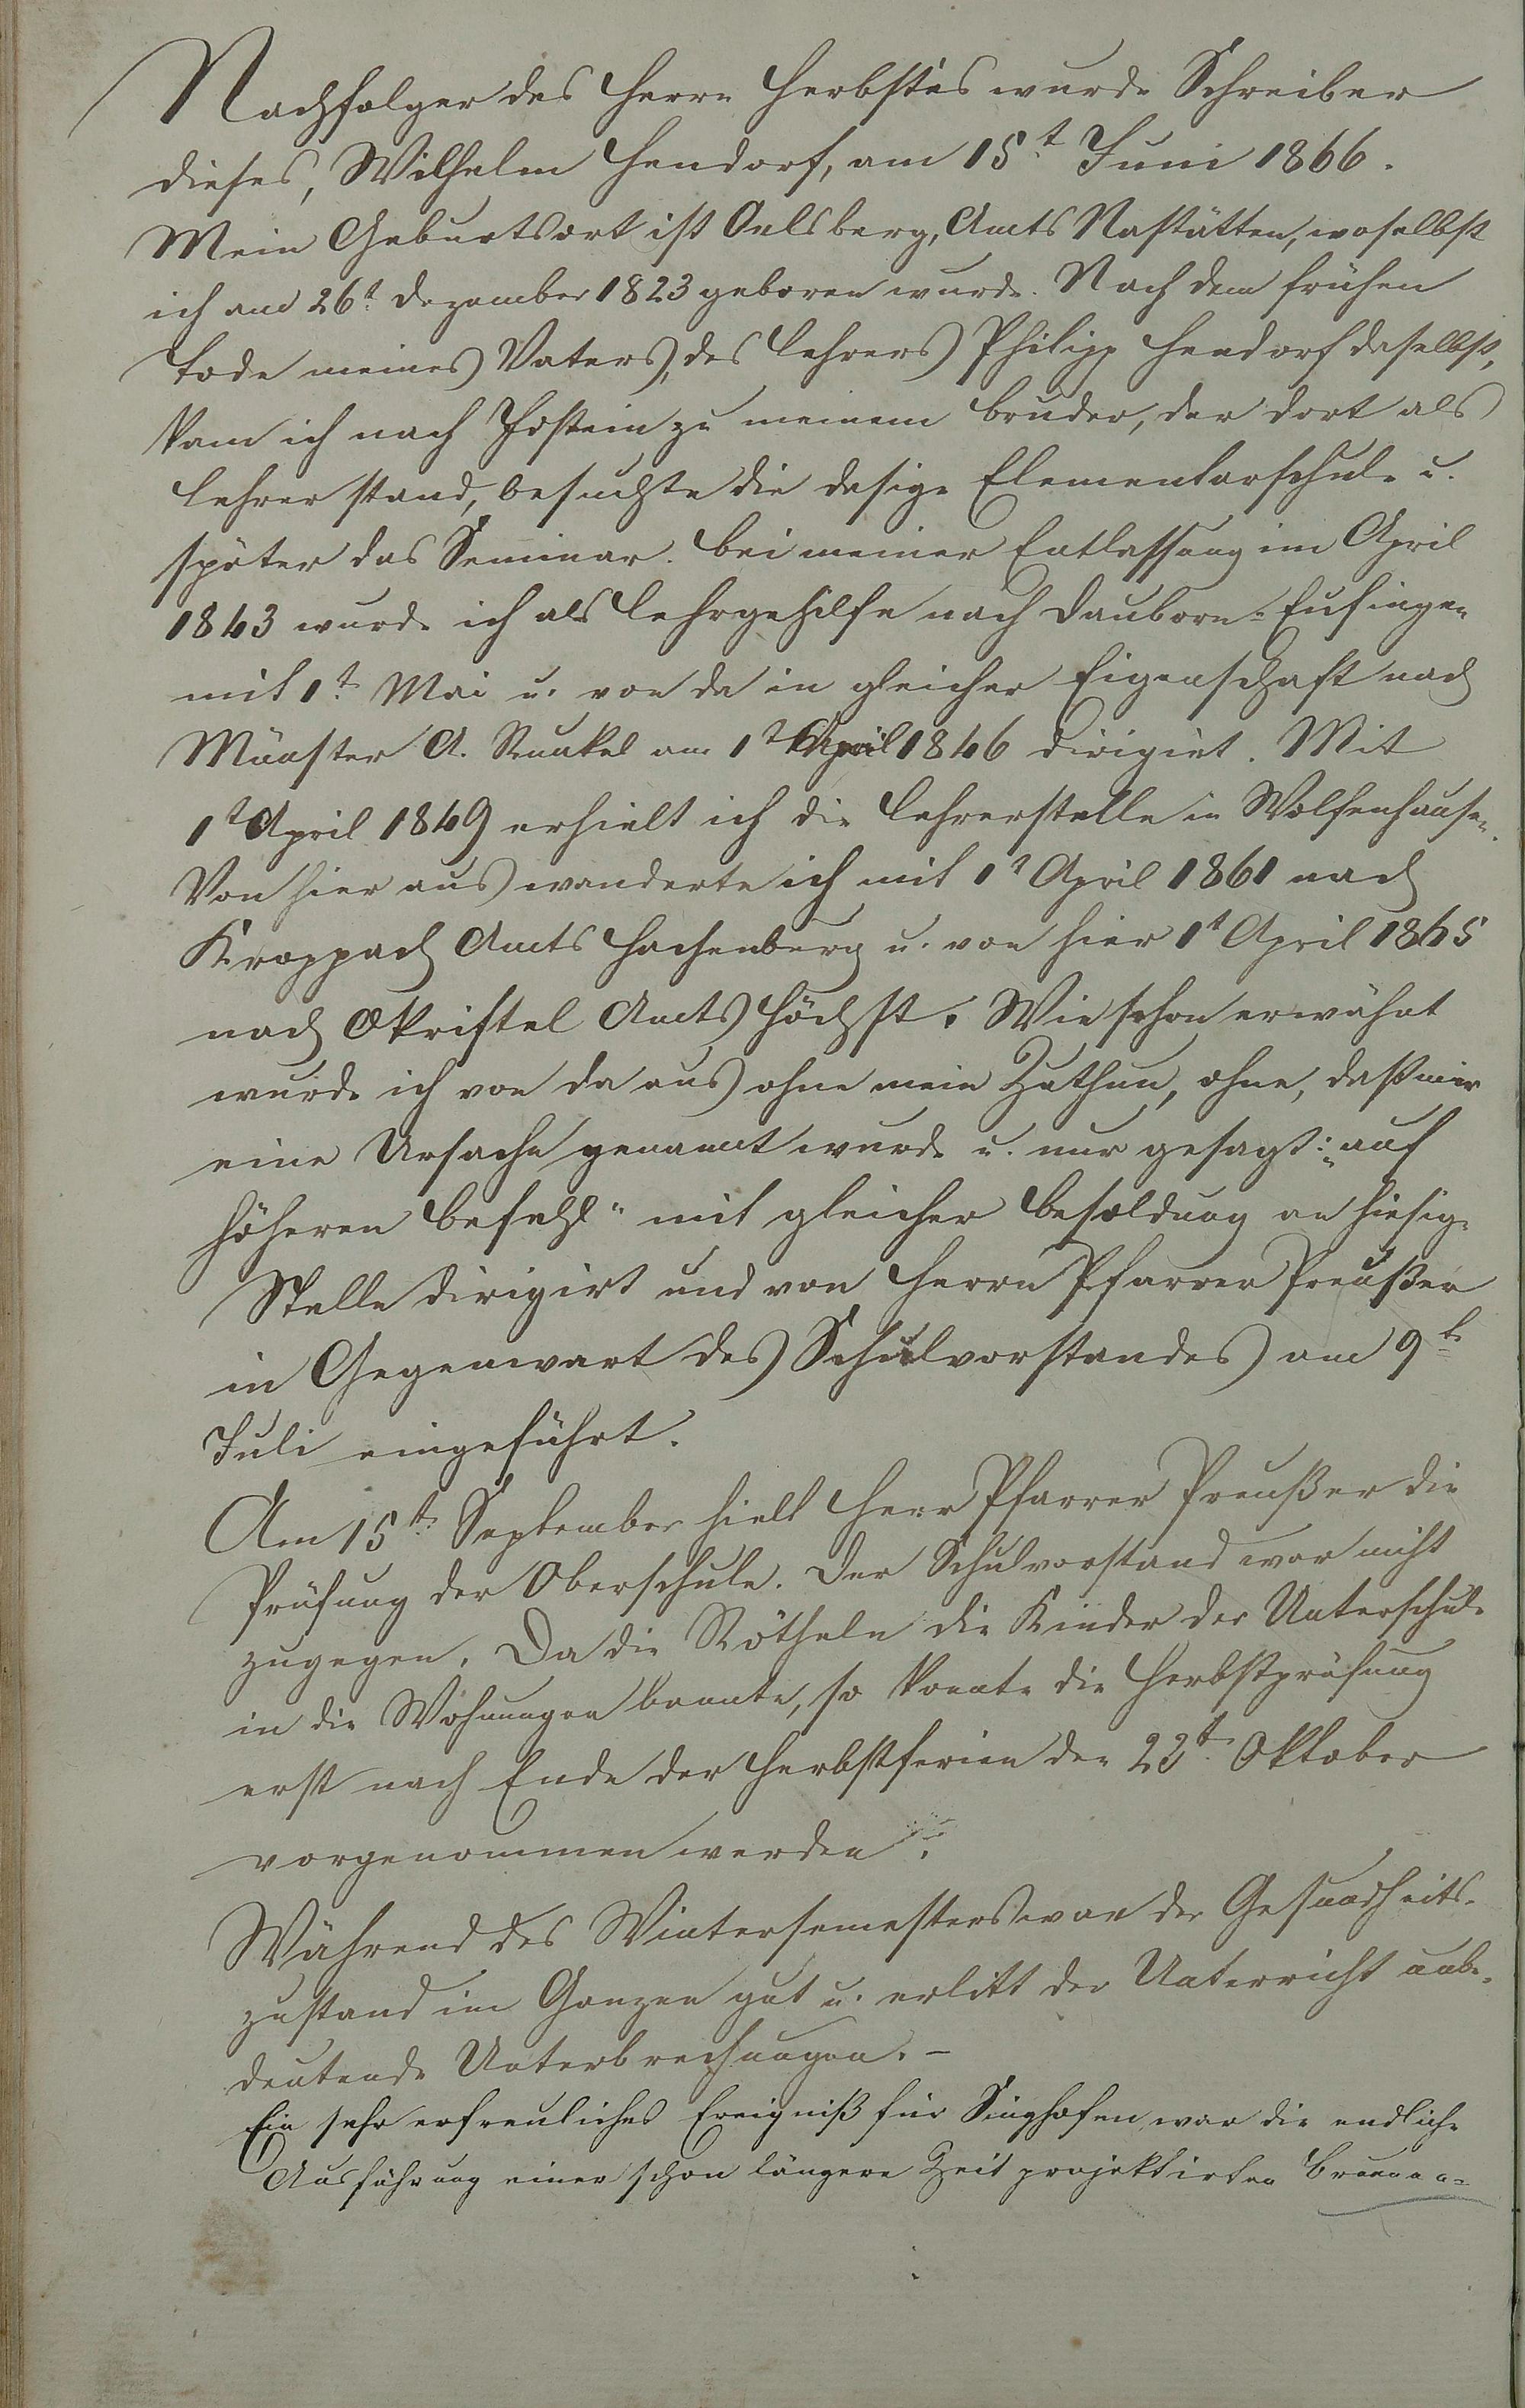 Nachfolger des Herrn Herbstes wurde Schreiber
dieses, Wilhelm Hendorf, am 15t Juni 1866.
Mein Geburtsort ist Oelsberg, Amts Nastätten, woselbst
ich am 26t Dezember 1823 geboren wurde. Nach dem frühen
Tode meines Vaters, des Lehrers Philipp Hendorf daselbst,
kam ich nach Idstein zu meinem Bruder, der dort als
Lehrer stand, besuchte die dasige Elementarschule u.
später das Seminar. Bei meiner Entlassung im April
1843 wurde ich als Lehrgehilfe nach Dauborn-Eufingen
mit 1t Mai u. von da in gleicher Eigenschaft nach
Münster A. Runkel am 1t April 1846 dirigirt. Mit
1t April 1849 erhielt ich die Lehrerstelle in Wolfenhausen.
Von hier aus wanderte ich mit 1t April 1861 nach
Kroppach Amts Hachenburg u. von hier 1t April 1865
nach Okriftel Amts Höchst. Wie schon erwähnt
wurde ich von da aus ohne mein Zuthun, ohne, daß mir
eine Ursache genannt wurde u. nur gesagt: „auf
höheren Befehl“ mit gleicher Besoldung an hiesige
Stelle dirigirt und von Herrn Pfarrer Preußer
in Gegenwart des Schulvorstandes am 9t
Juli eingeführt.
Am 15t September hielt Herr Pfarrer Preußer die
Prüfung der Oberschule. Der Schulvorstand war nicht
zugegen. Da die Rötheln die Kinder der Unterschule
in die Wohnungen bannte, so konnte die Herbstprüfung
erst nach Ende der Herbstferien den 22t Oktober
vorgenommen werden.
Während des Wintersemesters war der Gesundheits-
zustand im Ganzen gut u. erlitt der Unterricht unbe-
deutende Unterbrechungen. –
Ein sehr erfreuliches Ereigniß für Singhofen war die endliche
Ausführung einer schon längere Zeit projektirten Brunnen-